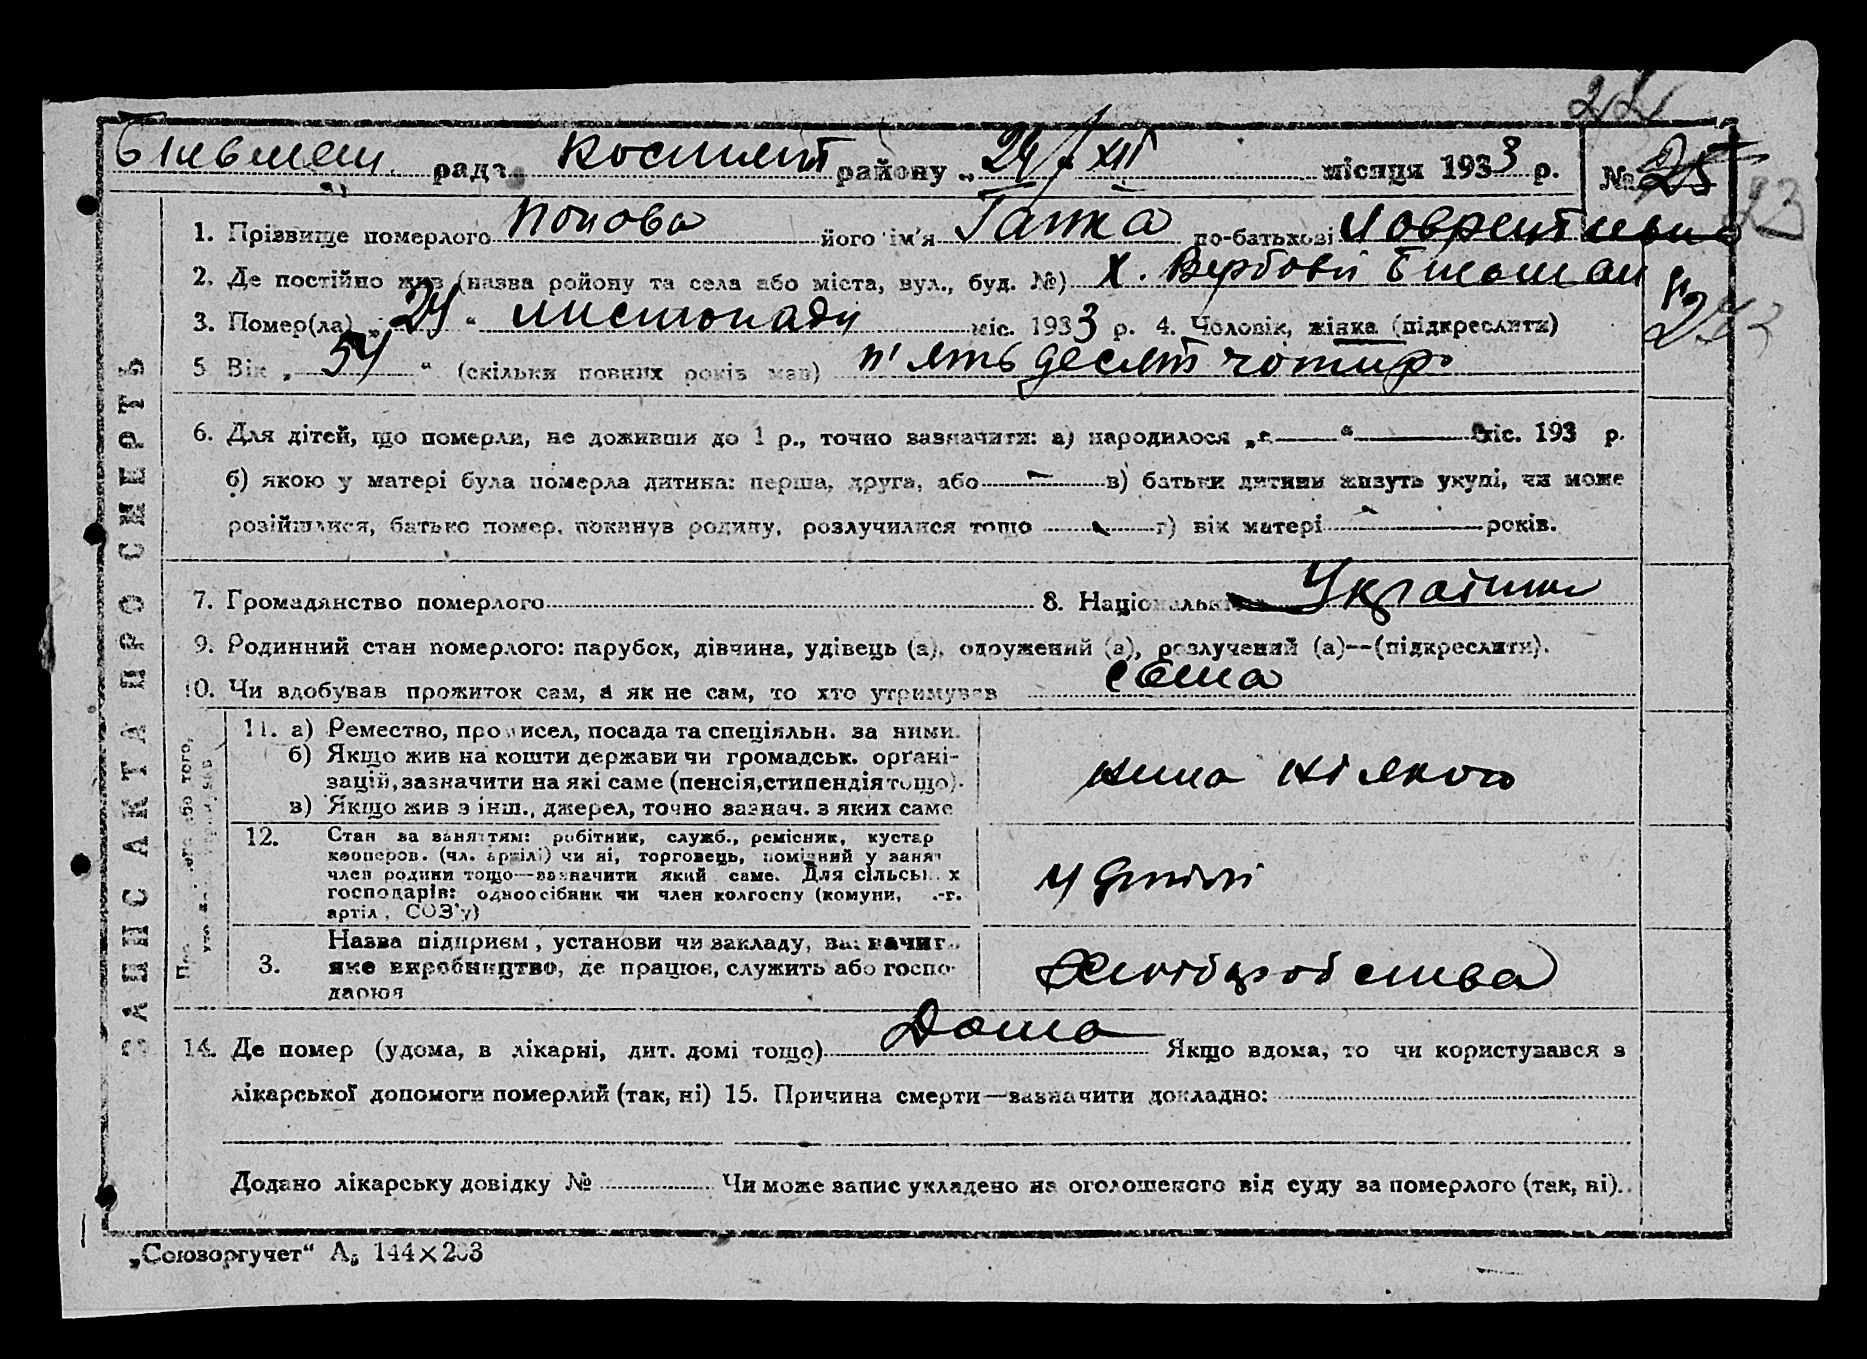 рада Костянт району „24/XII місяця 1933 р. № 25
1. Прізвище померлого Попова його ім'я Ганка по-батькові Лаврентіевна
2. Де постійно жив (назва району та села або міста, вул., буд. №) х. Вербовий
3. Помер(ла) „24“ листопаду міс. 1933 р. 4. Чоловік, жінка (підкреслити)
5 Вік „54“ (скільки повних років мав) п'ятьдесят чотири
6. Для дітей, що померли, не доживши до 1 р., точно зазначити: а) народилося „ “ міс. 193 р.
б) якою у матері була померла дитина: перша, друга, або в) батьки дитини живуть укупі, чи може
розійшлися, батько помер, покинув родину, розлучилися тощо г) вік матері років.
7. Громадянство померлого 8. Національність Українка
9. Родинний стан померлого: парубок, дівчина, удівець (а), одружений (а), розлучений (а)—(підкреслити).
10. Чи здобував прожиток сам, а як не сам, то хто утримував сама
11. а) Ремество, промисел, посада та спеціяльн. за ними.
б) Якщо жив на кошти держави чи громадськ. орґані-
зацій, зазначити на які саме (пенсія, стипендія тощо).
в) Якщо жив з інш., джерел, точно зазнач. з яких саме
ніякого
12. Стан за заняттям: робітник, служб., ремісник, кустар
кооперов. (чл. артілі) чи ні, торговець, помічний у занят
член родини тощо—зазначити який саме. Для сільськ х
господарів: одноосібник чи член колгоспу (комуни, .-г.
артіл, СОЗ'у)
3. Назва підприєм, установи чи закладу, зазначит
яке виробництво, де працює, служить або госпо-
дарює
Хліборобства
14. Де помер (удома, в лікарні, дит. домі тощо) Дома Якщо вдома, то чи користувався з
лікарської допомоги померлий (так, ні) 15. Причина смерти—зазначити докладно:
Додано лікарську довідку № Чи може запис укладено на оголошеного від суду за померлого (так, ні).
ЗАПИС АКТА ПРО СМЕРТЬ
„Союзоргучет“ А5 144×203